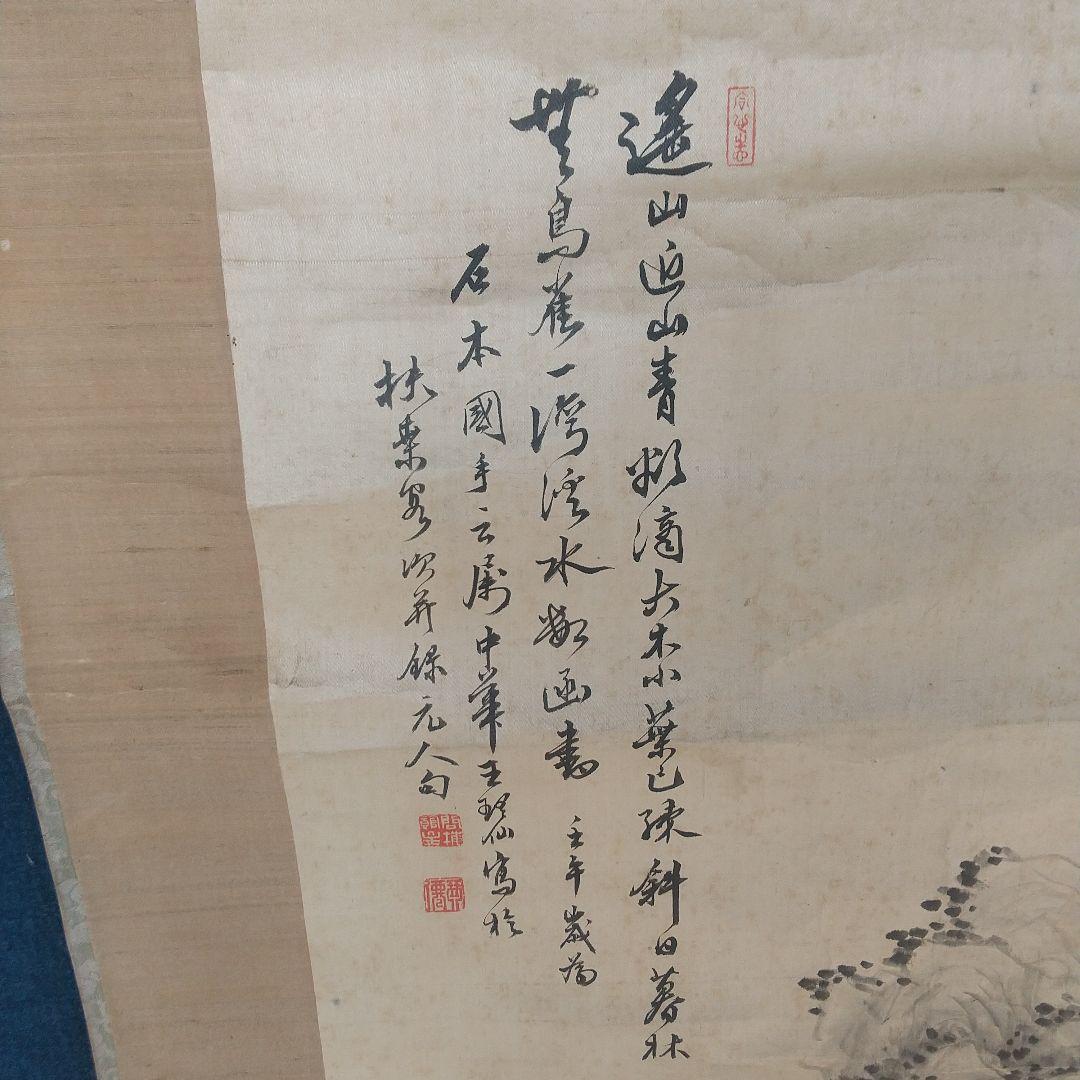 遙山近山青欲滴大木小葉已疎斜日暮林
無鳥雀一灣溪水數函書 壬午歲為
石本國手云屬中華王琴仙寫於
扶桑客次并錄元人句